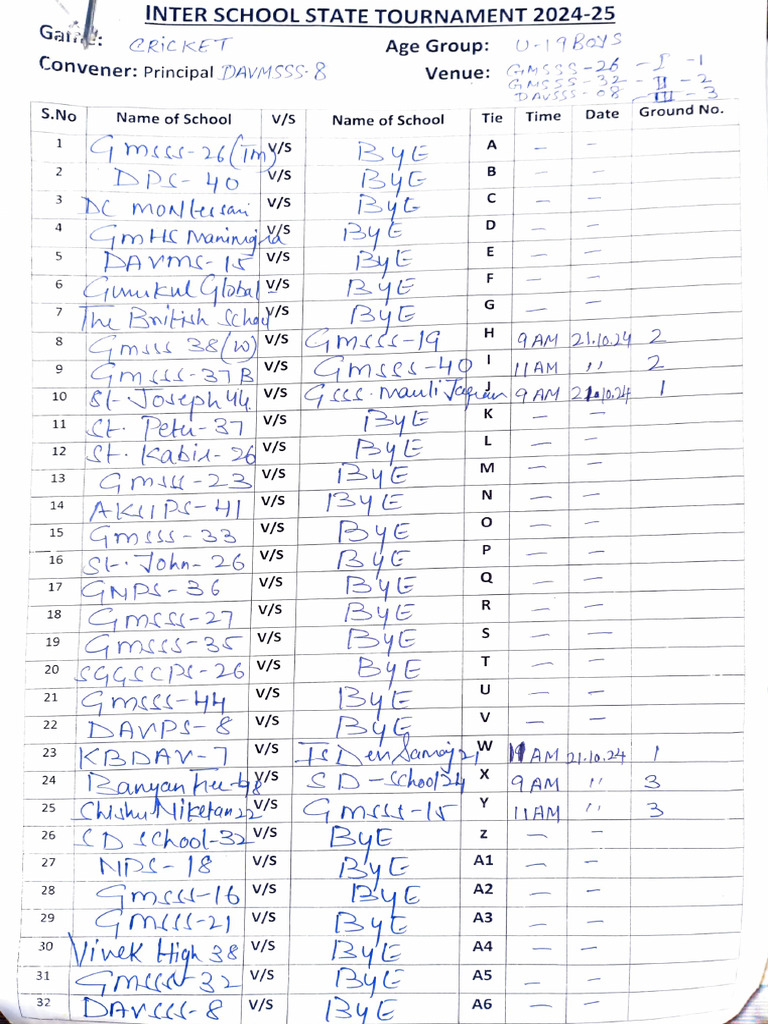 INTER SCHOOL STATE TOURNAMENT 2024-25
Game: CRICKET Age Group: U-19 BOYS
Convener: Principal DAVMSSS-8 Venue: GMSSS-26 - I - 1
GMSSS-32 - II - 2
DAVSSS-08 - III - 3
S.No Name of School V/S Name of School Tie Time Date Ground No.
1 GMSSS-26(TM) V/S BYE A - -
2 DPS-40 V/S BYE B - -
3 DC Montessari V/S BYE C - -
4 GMHS V/S BYE D - -
5 DAVMS-15 V/S BYE E - -
6 Gurukul Global V/S BYE F - -
7 The British School V/S BYE G - -
8 GMSSS 38(W) V/S GMSSS-19 H 9 AM 21.10.24 2
9 GMSSS-37B V/S GMSSS-40 I 11 AM " 2
10 St. Joseph 44 V/S GSSS. Mauli Jagran J 9 AM 21.10.24 1
11 St. Peter-37 V/S BYE K - -
12 St. Kabir-26 V/S BYE L - -
13 GMSSS-23 V/S BYE M - -
14 AKSIPS-41 V/S BYE N - -
15 GMSSS-33 V/S BYE O - -
16 St. John-26 V/S BYE P - -
17 GNPS-36 V/S BYE Q - -
18 GMSSS-27 V/S BYE R - -
19 GMSSS-35 V/S BYE S - -
20 SGGSCPS-26 V/S BYE T - -
21 GMSSS-44 V/S BYE U - -
22 DAVPS-8 V/S BYE V - -
23 KBDAV-7 V/S Is Dev Samaj 21 W 11 AM 21.10.24 1
24 Banyan Tree-48 V/S SD-School 24 X 9 AM " 3
25 Shishu Niketan 22 V/S GMSSS-15 Y 11 AM " 3
26 SD School-32 V/S BYE Z - -
27 NPS-18 V/S BYE A1 - -
28 GMSSS-16 V/S BYE A2 - -
29 GMSSS-21 V/S BYE A3 - -
30 Vivek High 38 V/S BYE A4 - -
31 GMSSS-32 V/S BYE A5 - -
32 DAVSSS-8 V/S BYE A6 - -